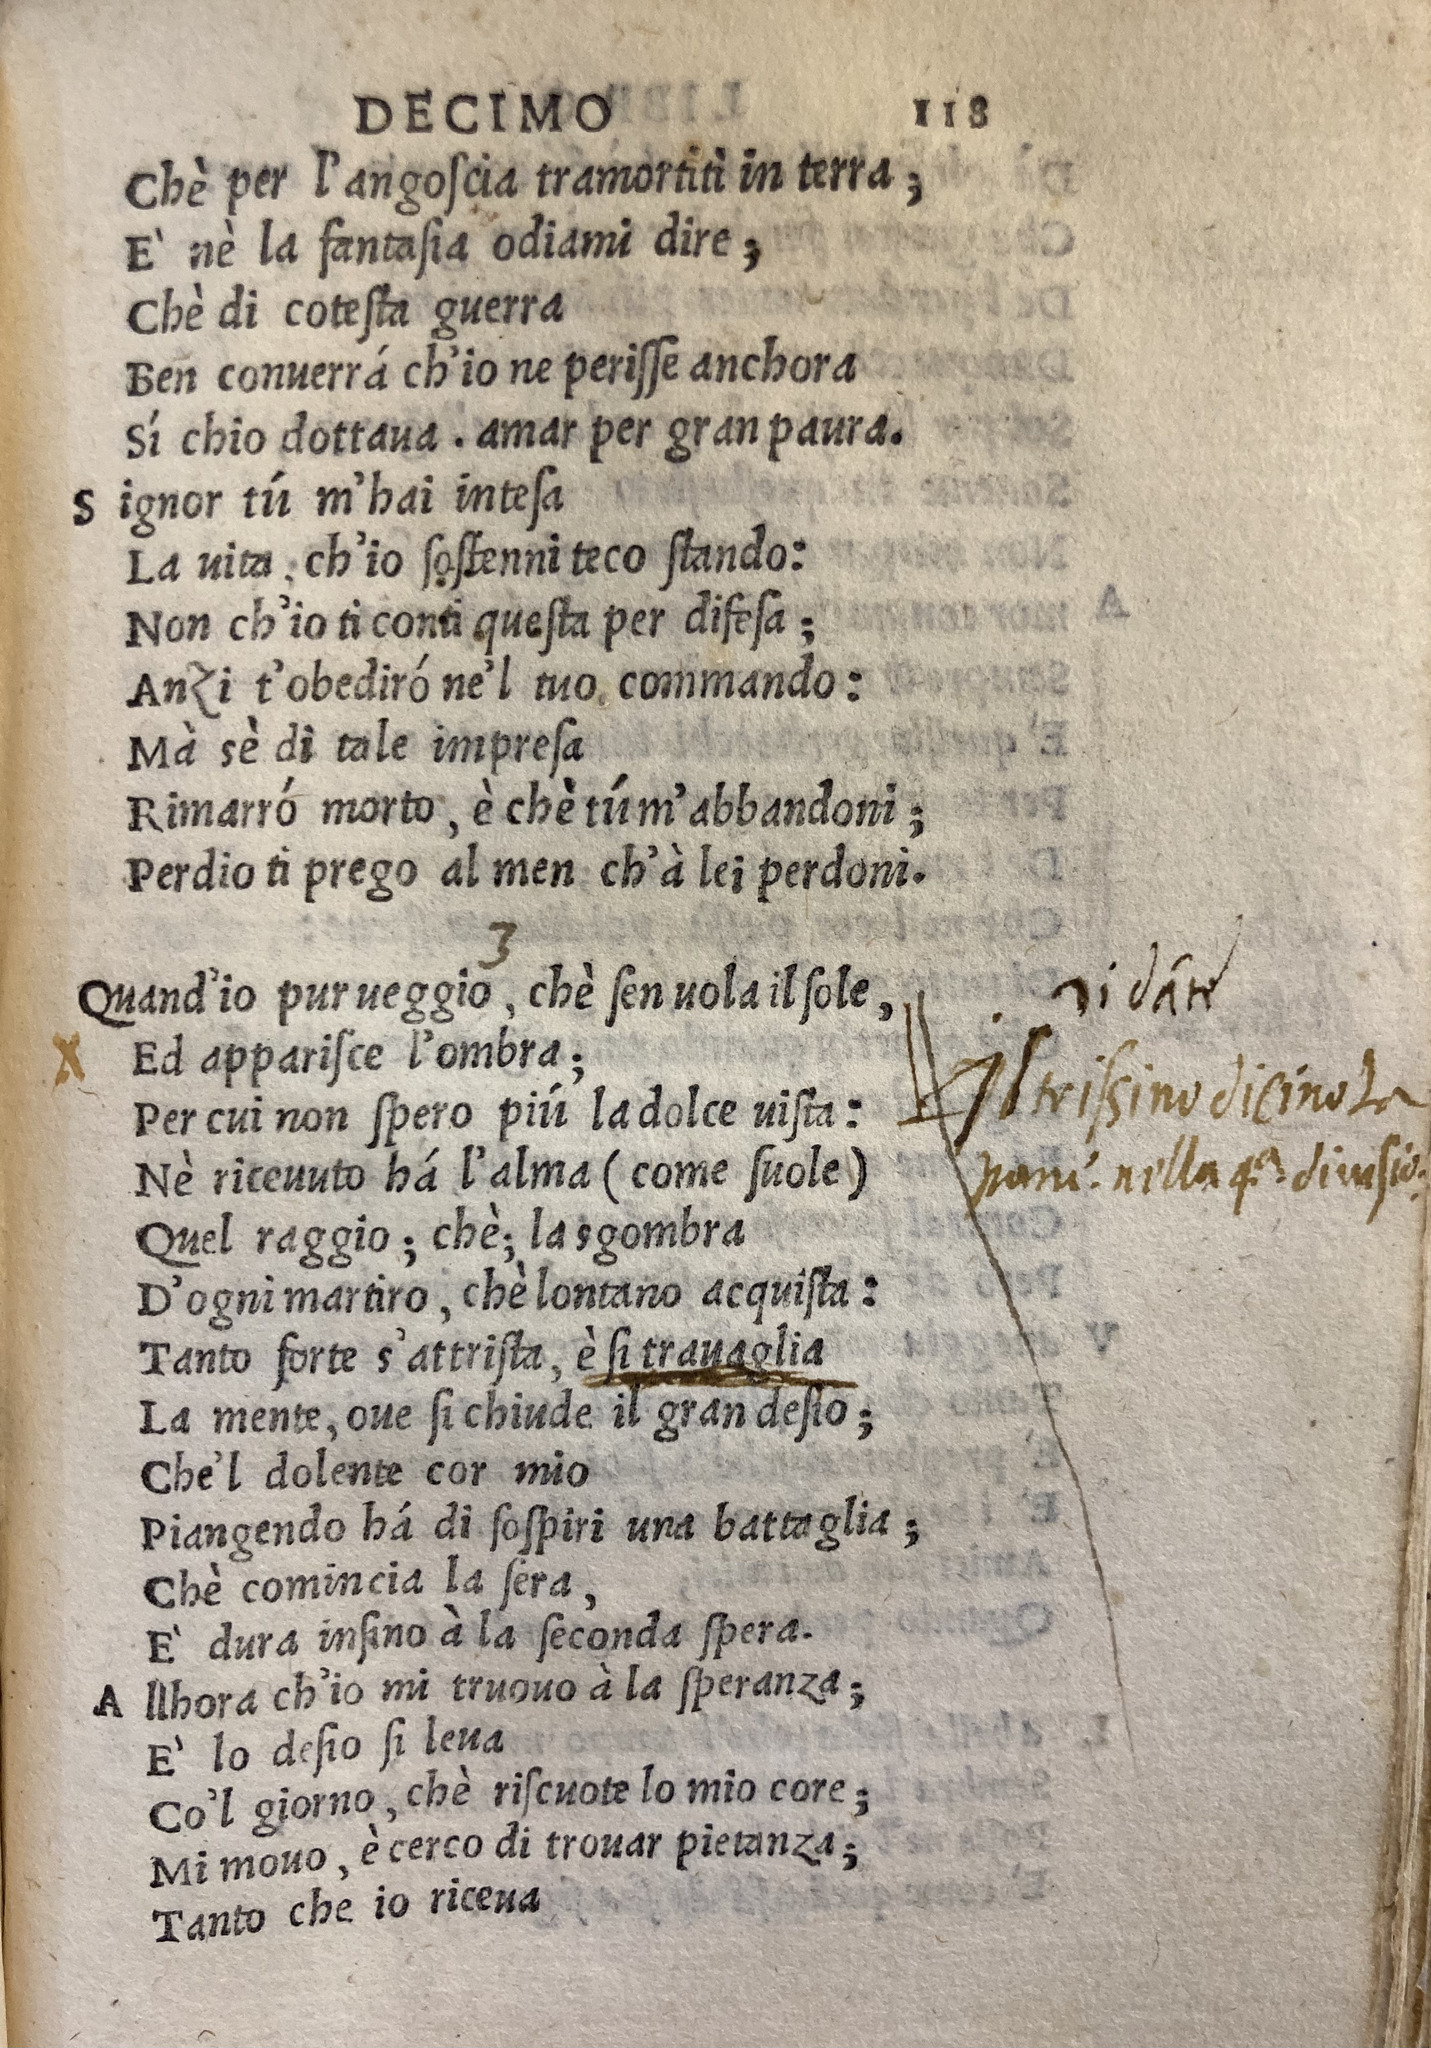 DECIMO 118
Chè per l'angoſcia tramortitì in terra;
E' nè la fantaſia odiami dire;
Chè di coteſta guerra
Ben conuerrá ch'io ne periſſe anchora
Sí chio dottaua . amar per gran paura.
S ignor tú m'hai inteſa
La uita, ch'io ſoſtenni teco ſtando:
Non ch'io ti conti queſta per difeſa;
Anzi t'obediró ne'l tuo commando:
Mà sè di tale impreſa
Rimarró morto, è chè tú m'abbandoni;
Perdio ti prego al men ch'à lei perdoni.
3
Quand'io pur ueggio, chè ſen uola il ſole,
X Ed appariſce l'ombra;
Per cui non ſpero piú la dolce uiſta:
Nè riceuuto há l'alma (come ſuole)
Quel raggio; chè; la sgombra
D'ogni martiro, chè lontano acquiſta:
Tanto forte s'attriſta, è ſi trauaglia
La mente, oue ſi chiude il gran deſio;
Che'l dolente cor mio
Piangendo há di ſoſpiri una battaglia;
Chè comincia la ſera,
E' dura inſino à la ſeconda ſpera.
A llhora ch'io mi truouo à la ſperanza;
E' lo deſio ſi leua
Co'l giorno, chè riſcuote lo mio core;
Mi mouo, è cerco di trouar pietanza;
Tanto che io riceua
di dāte
Il triſsino di cino
nella 4ª diuiſio.